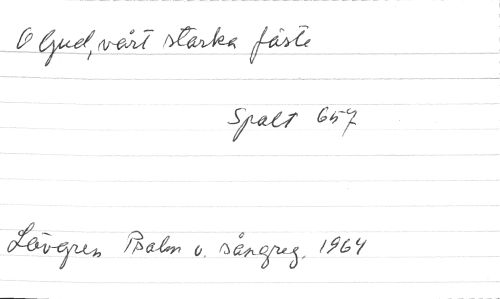 O Gud, vårt starka fäste
Spalt 657
Lövgren Psalm o. sångreg. 1964